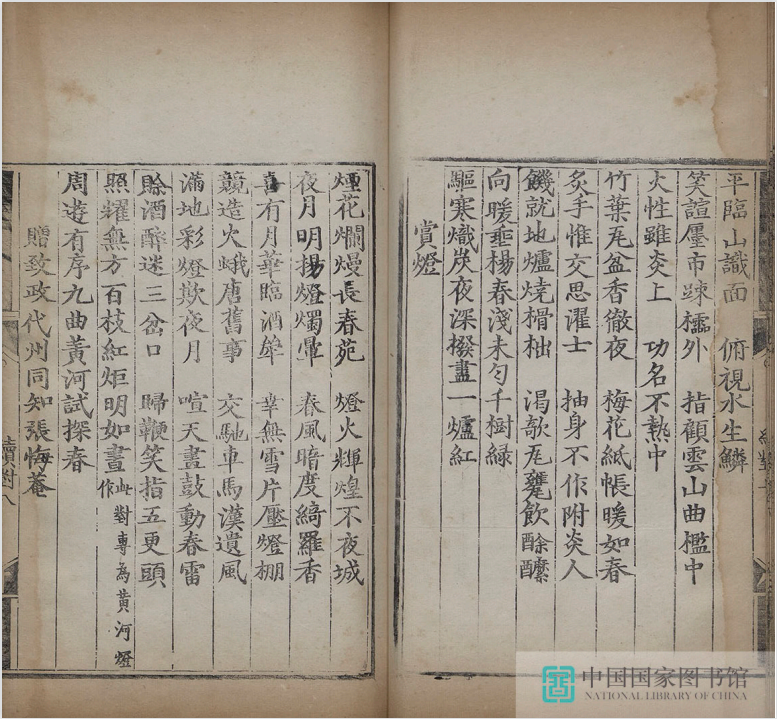 平臨山識面　俯視水生鱗
笑諠廛市踈櫺外　指顧雲山曲檻中
火性雖炎上　功名不熱中
竹葉瓦盆香徹夜　梅花紙帳暖如春
炙手惟交思濯士　抽身不作附炎人
饑就地爐燒榾柮　渴欹瓦甕飲酴醿
向暖垂楊春淺未勻千樹綠
驅寒熾炭夜深撥盡一爐紅
賞燈
煙花爛熳長春苑　燈火輝煌不夜城
夜月明揚燈燭暈　春風暗度綺羅香
喜有月華臨酒斚　幸無雪片壓燈棚
競造火蛾唐舊事　交馳車馬漢遺風
滿地彩燈欺夜月　喧天畫鼓動春雷
賒酒醉迷三岔口　歸鞭笑指五更頭
照耀無方百枝紅炬明如晝　此對專為黃河燈作
周遊有序九曲黃河試探春
贈致政代州同知張悔菴
續對八
中国国家图书馆
NATIONAL LIBRARY OF CHINA